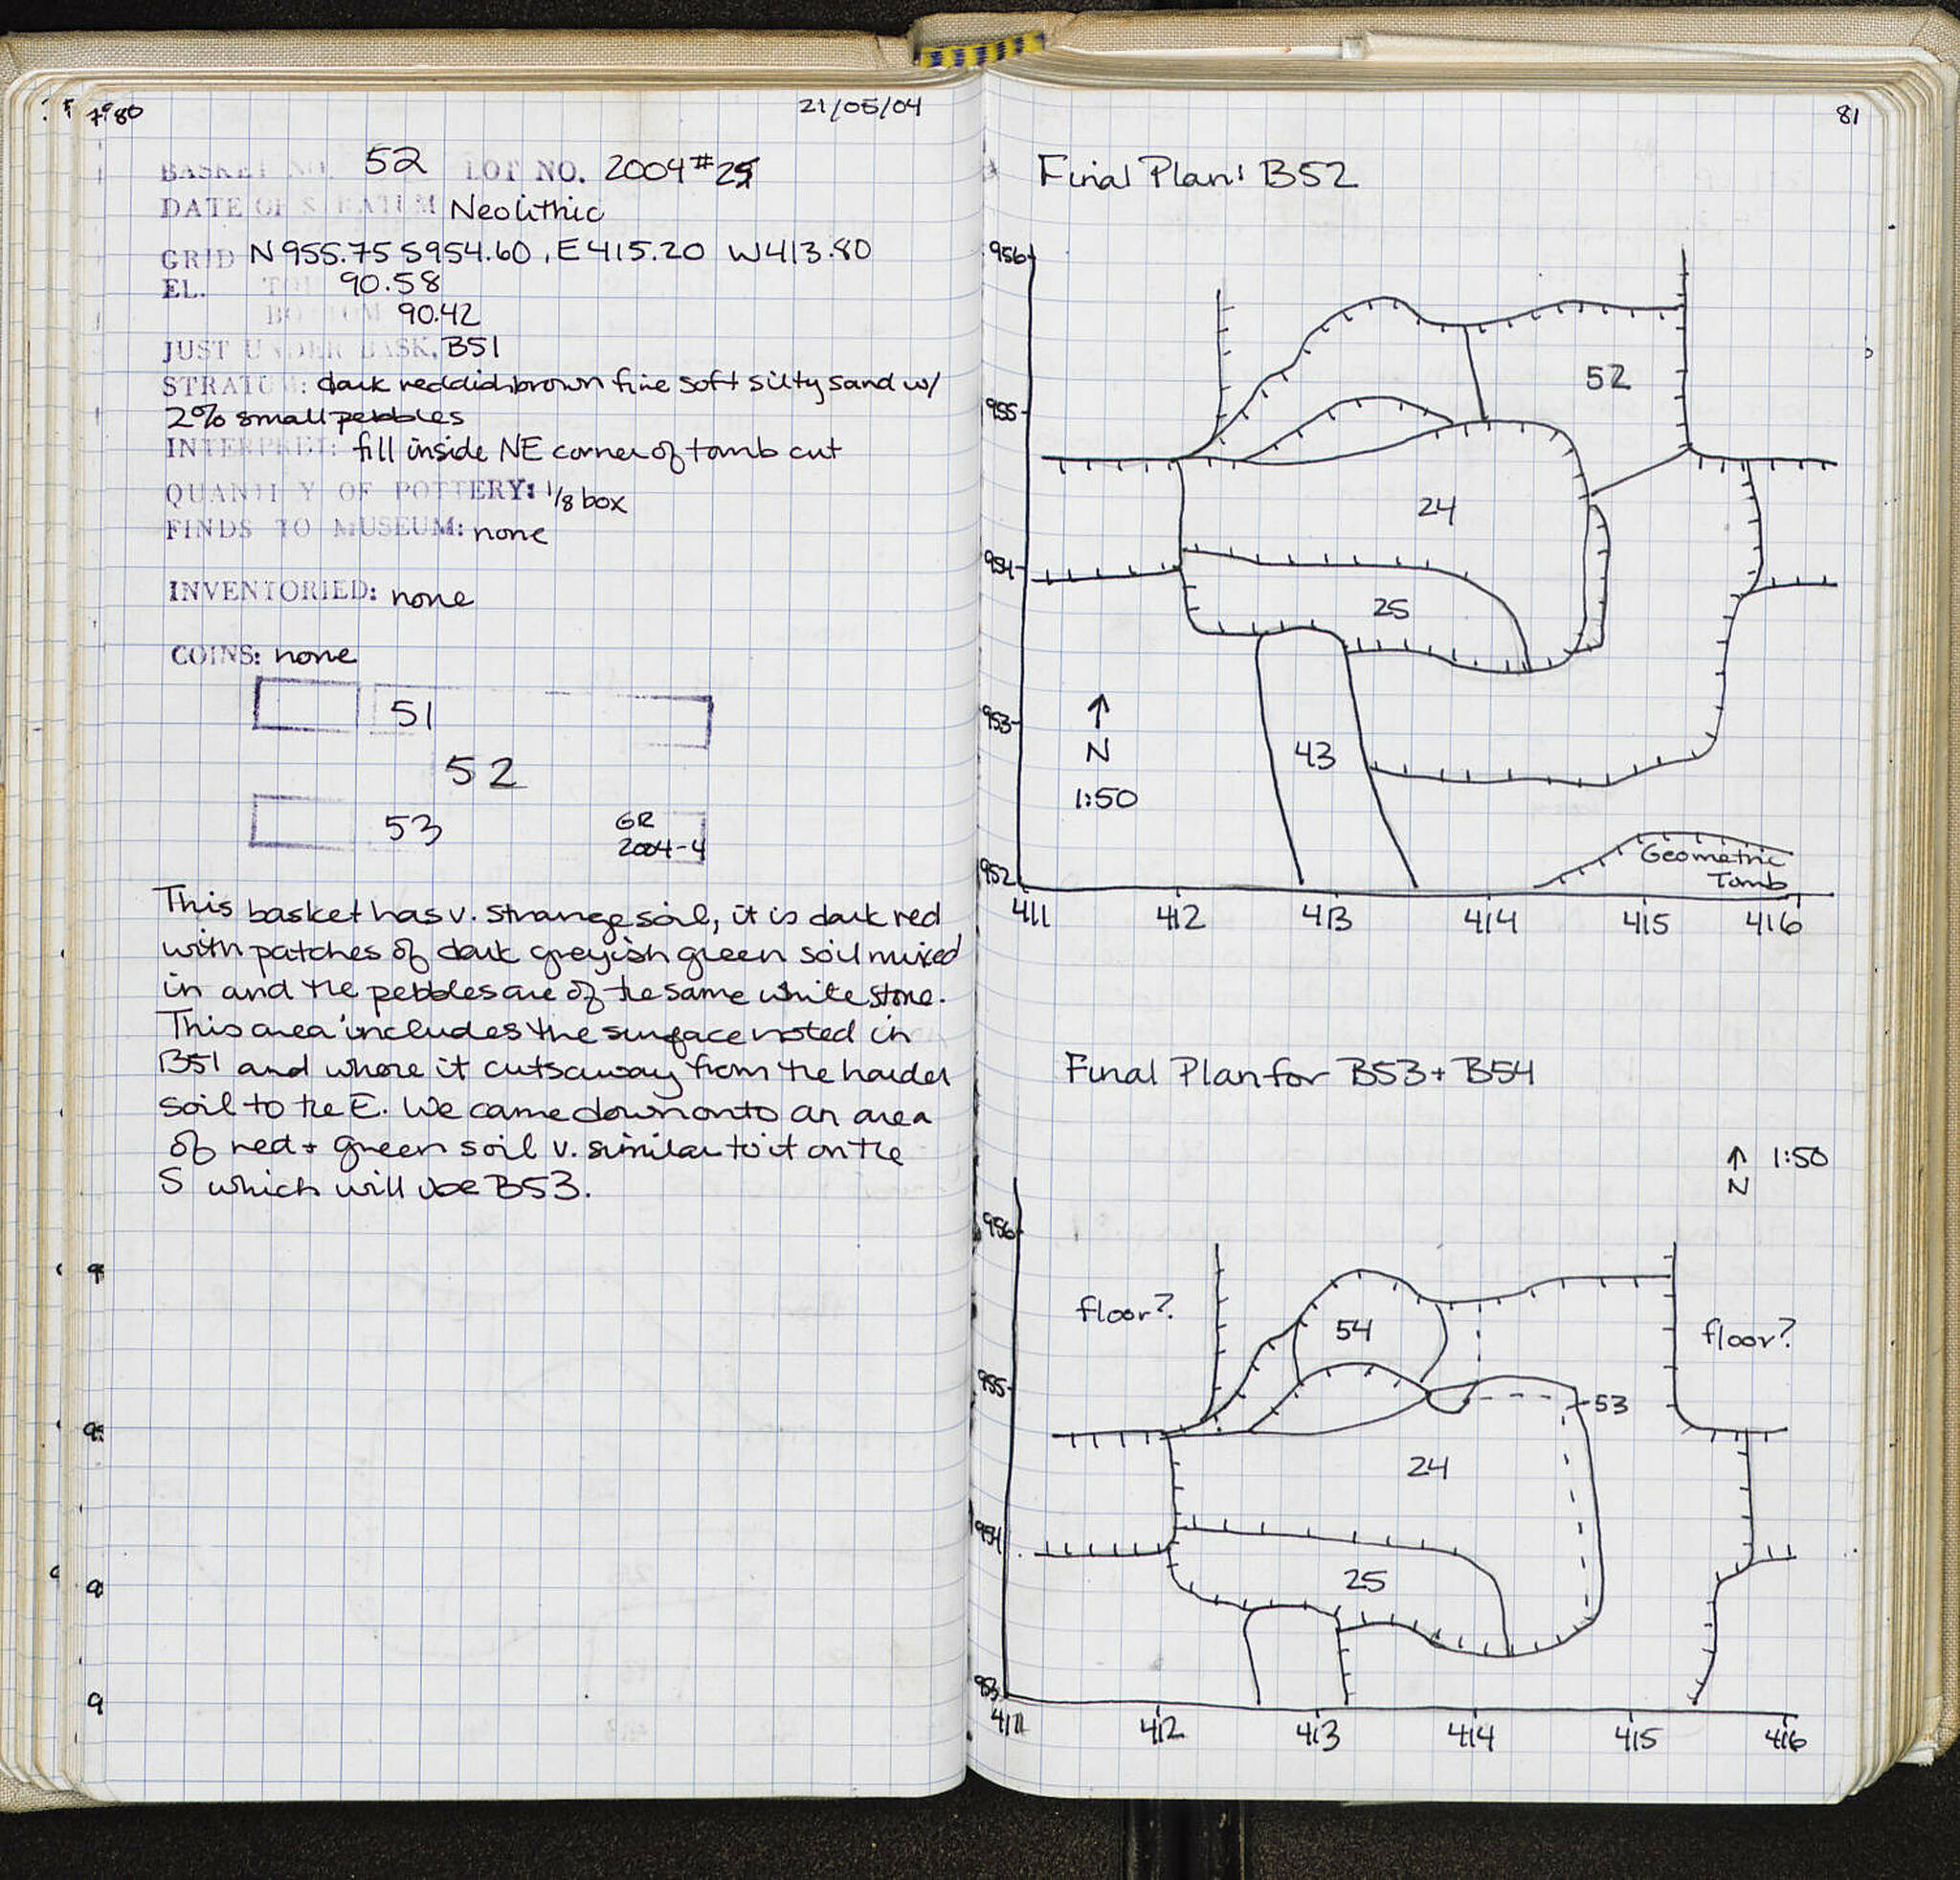 80
21/05/04
BASKET NO. 52 LOT NO. 2004#25
DATE OF STRATUM Neolithic
GRID N955.75 S954.60, E415.20 W413.80
EL. TOP 90.58
BOTTOM 90.42
JUST UNDER BASK. B51
STRATUM: dark reddish brown fine soft silty sand w/
2% small pebbles
INTERPRET: fill inside NE corner of tomb cut
QUANTITY OF POTTERY: 1/8 box
FINDS TO MUSEUM: none
INVENTORIED: none
COINS: none
51
52
53 GR
2004-4
This basket has v. strange soil, it is dark red
with patches of dark greyish green soil mixed
in and the pebbles are of the same white stone.
This area includes the surface noted in
B51 and where it cuts away from the harder
soil to the E. We came down onto an area
of red + green soil v. similar to it on the
S which will be B53.
81
Final Plan: B52
956
52
955
24
954
25
953
N
43
1:50
952
Geometric
Tomb
411 412 413 414 415 416
Final Plan for B53 + B54
1:50
N
956
floor?
54
floor?
955
53
24
954
25
953
411 412 413 414 415 416